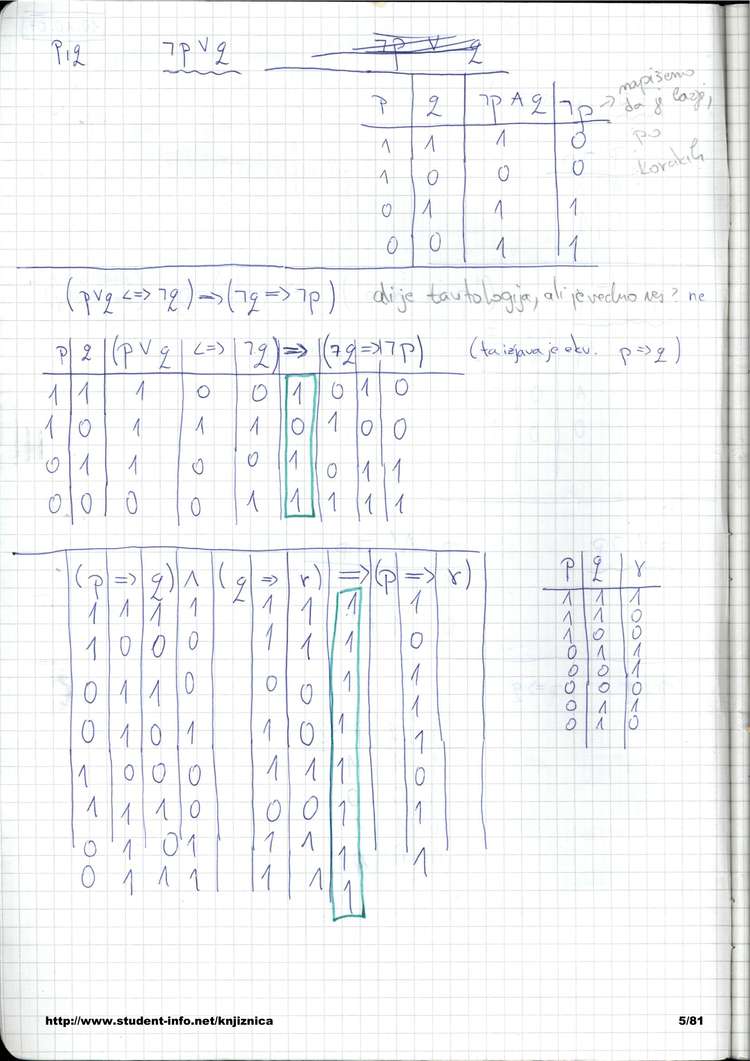 p,q ¬p∨q ¬p ∨ q
p q ¬p∧q ¬p → napišemo da je lažji, po korakih
1 1 1 0
1 0 0 0
0 1 1 1
0 0 1 1
(p∨q <=> ¬q) => (¬q => ¬p) ali je tavtologija, ali je vedno res? ne
p q (p∨q <=> ¬q) => (¬q => ¬p) (ta izjava je ekv. p => q)
1 1 1 0 0 1 0 1 0
1 0 1 1 1 0 1 0 0
0 1 1 0 0 1 0 1 1
0 0 0 0 1 1 1 1 1
(p => q) ∧ (q => r) => (p => r)
1 1 1 1 1 1 1 1
1 0 0 0 1 1 1 0
0 1 1 0 0 0 1 1
0 1 0 1 1 0 1 1
1 0 0 0 1 1 1 1
1 1 1 0 0 0 1 0
0 1 0 1 1 1 1 1
0 1 1 1 1 1 1 1
p q r
1 1 1
1 1 0
1 0 0
0 1 1
0 0 1
0 0 0
0 1 1
0 1 0
http://www.student-info.net/knjiznica 5/81